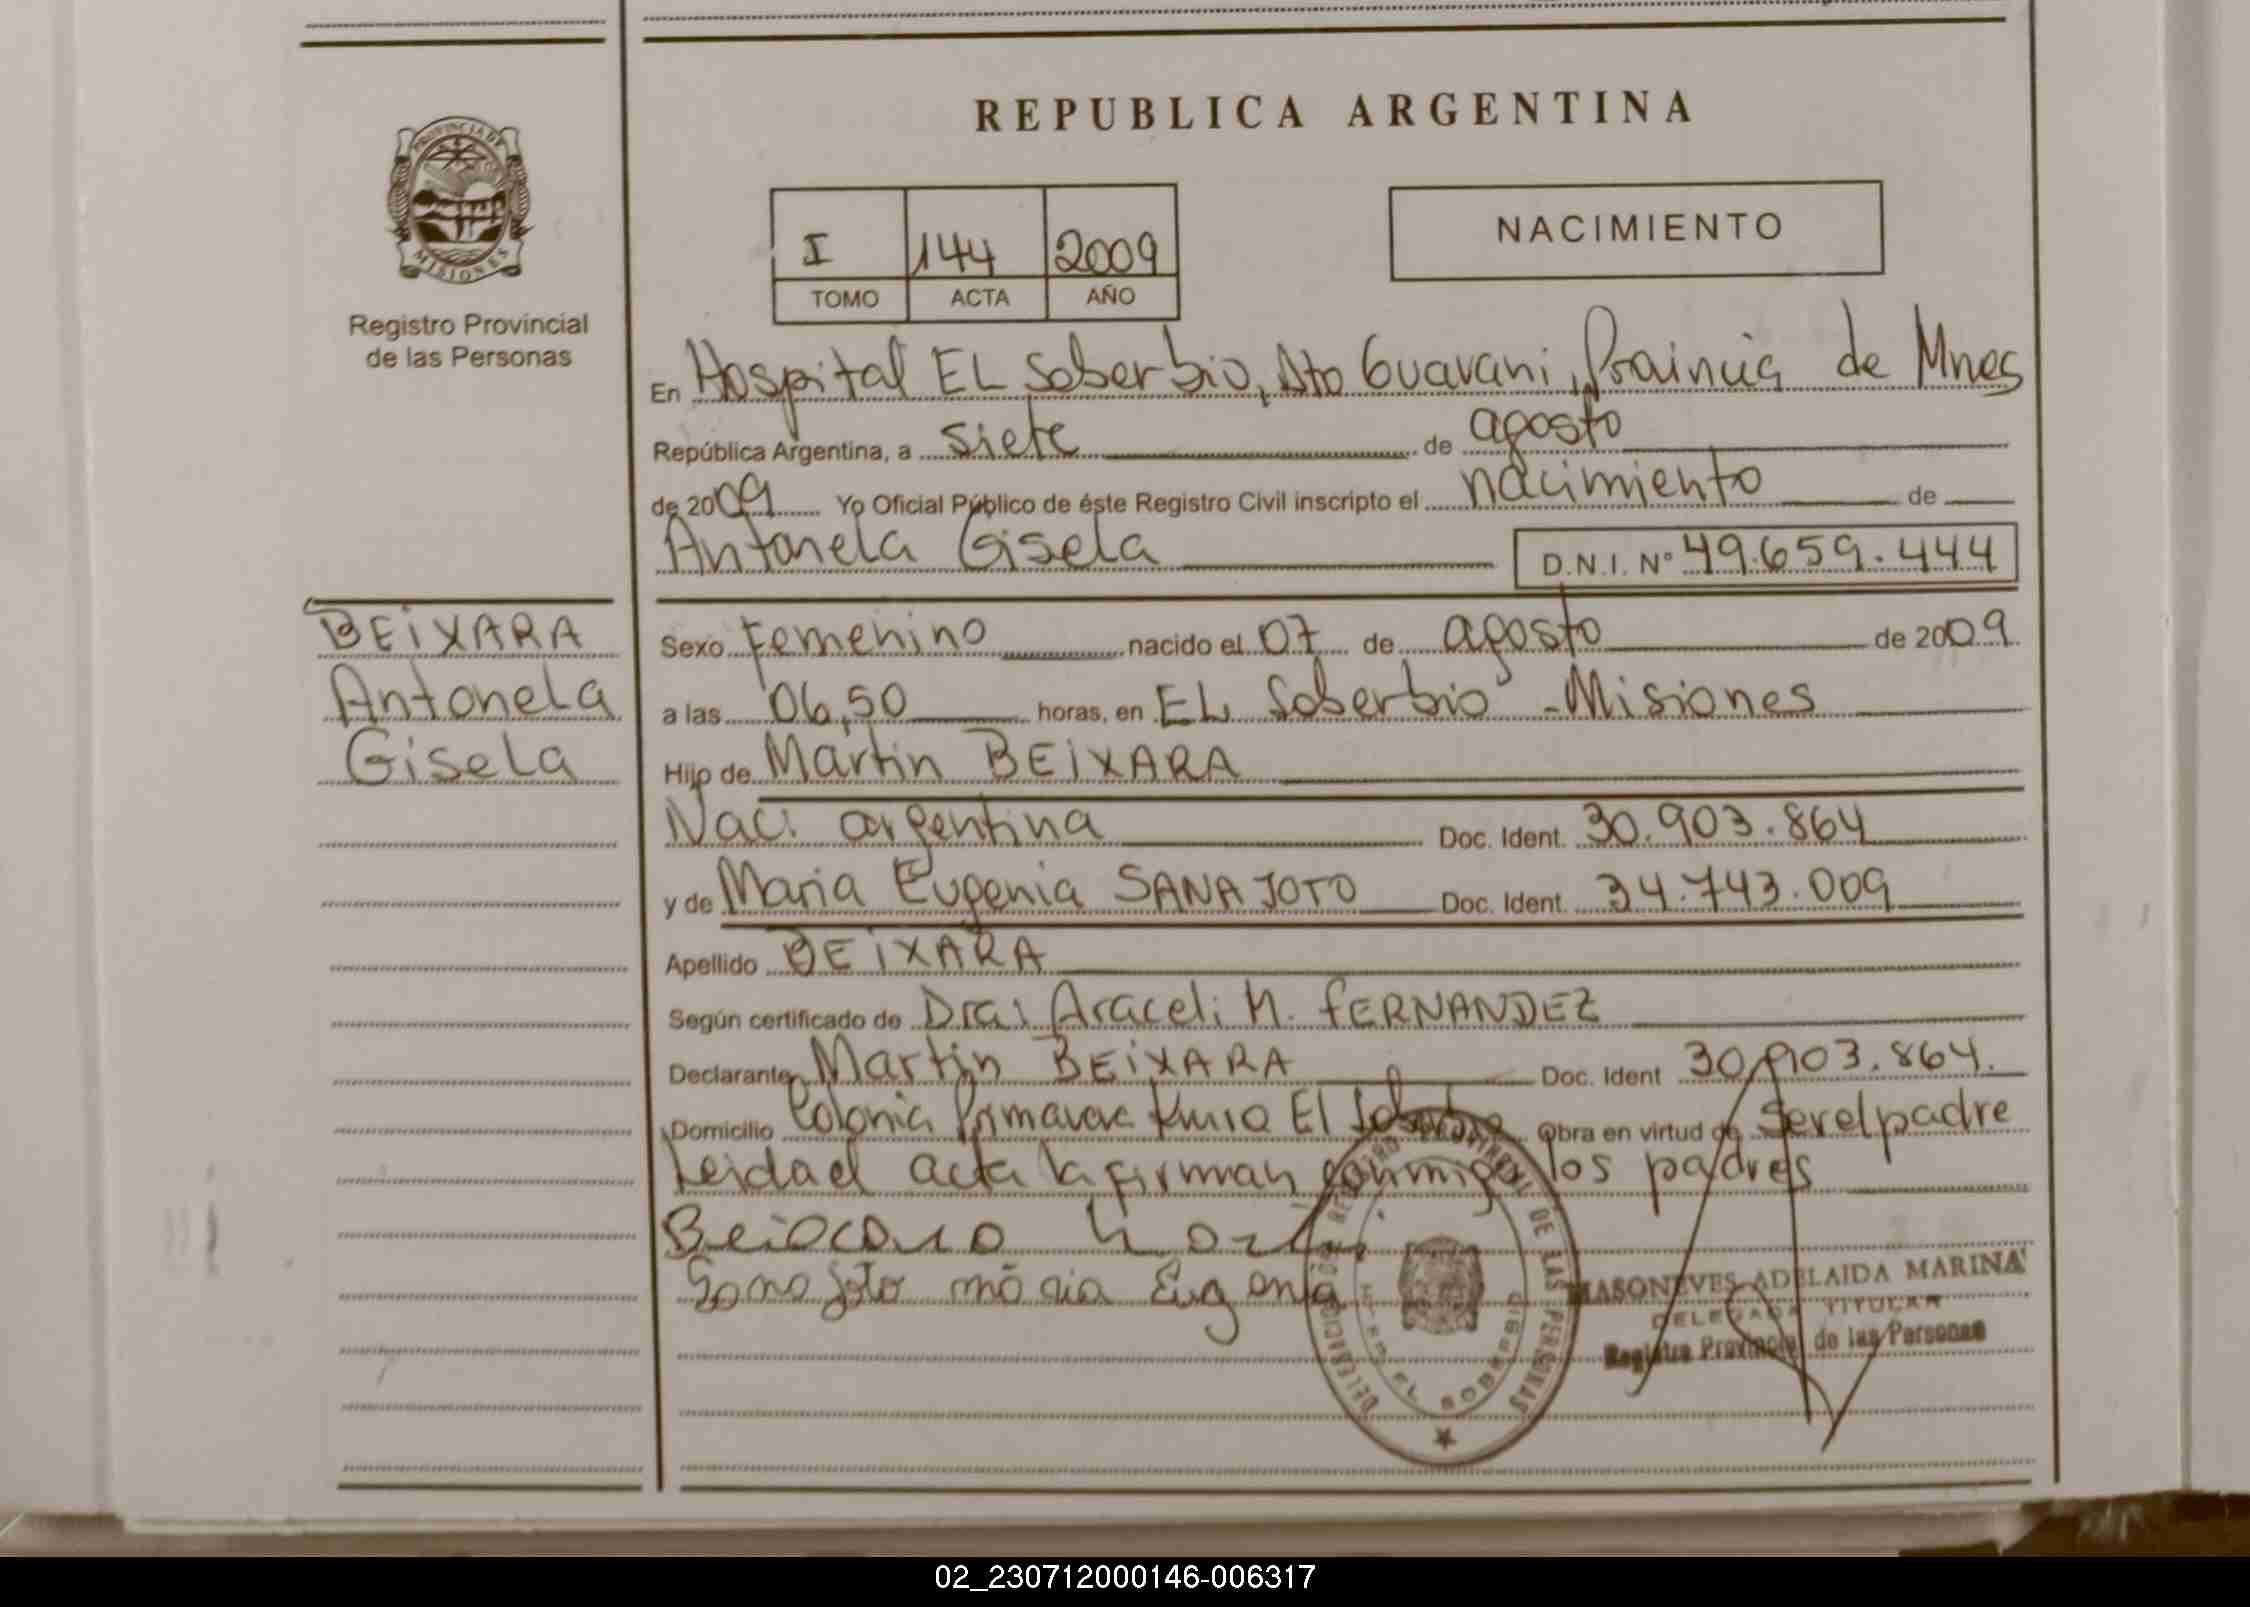 REPUBLICA ARGENTINA
PROVINCIA DE MISIONES
Registro Provincial
de las Personas
I 144 2009
TOMO ACTA AÑO
NACIMIENTO
En Hospital EL Soberbio, Dto Guarani, Provincia de Mnes
República Argentina, a siete de agosto
de 2009 Yo Oficial Público de éste Registro Civil inscripto el nacimiento de
Antonela Gisela D.N.I. Nº 49.659.444
BEIXARA
Antonela
Gisela
Sexo Femenino nacido el 07 de agosto de 2009
a las 06,50 horas, en EL Soberbio - Misiones
Hijo de Martin BEIXARA
Nac. argentina Doc. Ident. 30.903.864
y de Maria Eugenia SANAJOTO Doc. Ident. 34.743.009
Apellido BEIXARA
Según certificado de Dra. Araceli M. FERNANDEZ
Declarante Martin BEIXARA Doc. Ident 30.903.864.
Domicilio Colonia El Soberbio Obra en virtud de ser el padre
Leida el acta la firman conmigo los padres
Sanajoto maria Eugenia
DELEGACION REGISTRO PROVINCIAL DE LAS PERSONAS
EL SOBERBIO
MASONEVES ADELAIDA MARINA
DELEGADA TITULAR
Registro Provincial de las Personas
02_230712000146-006317